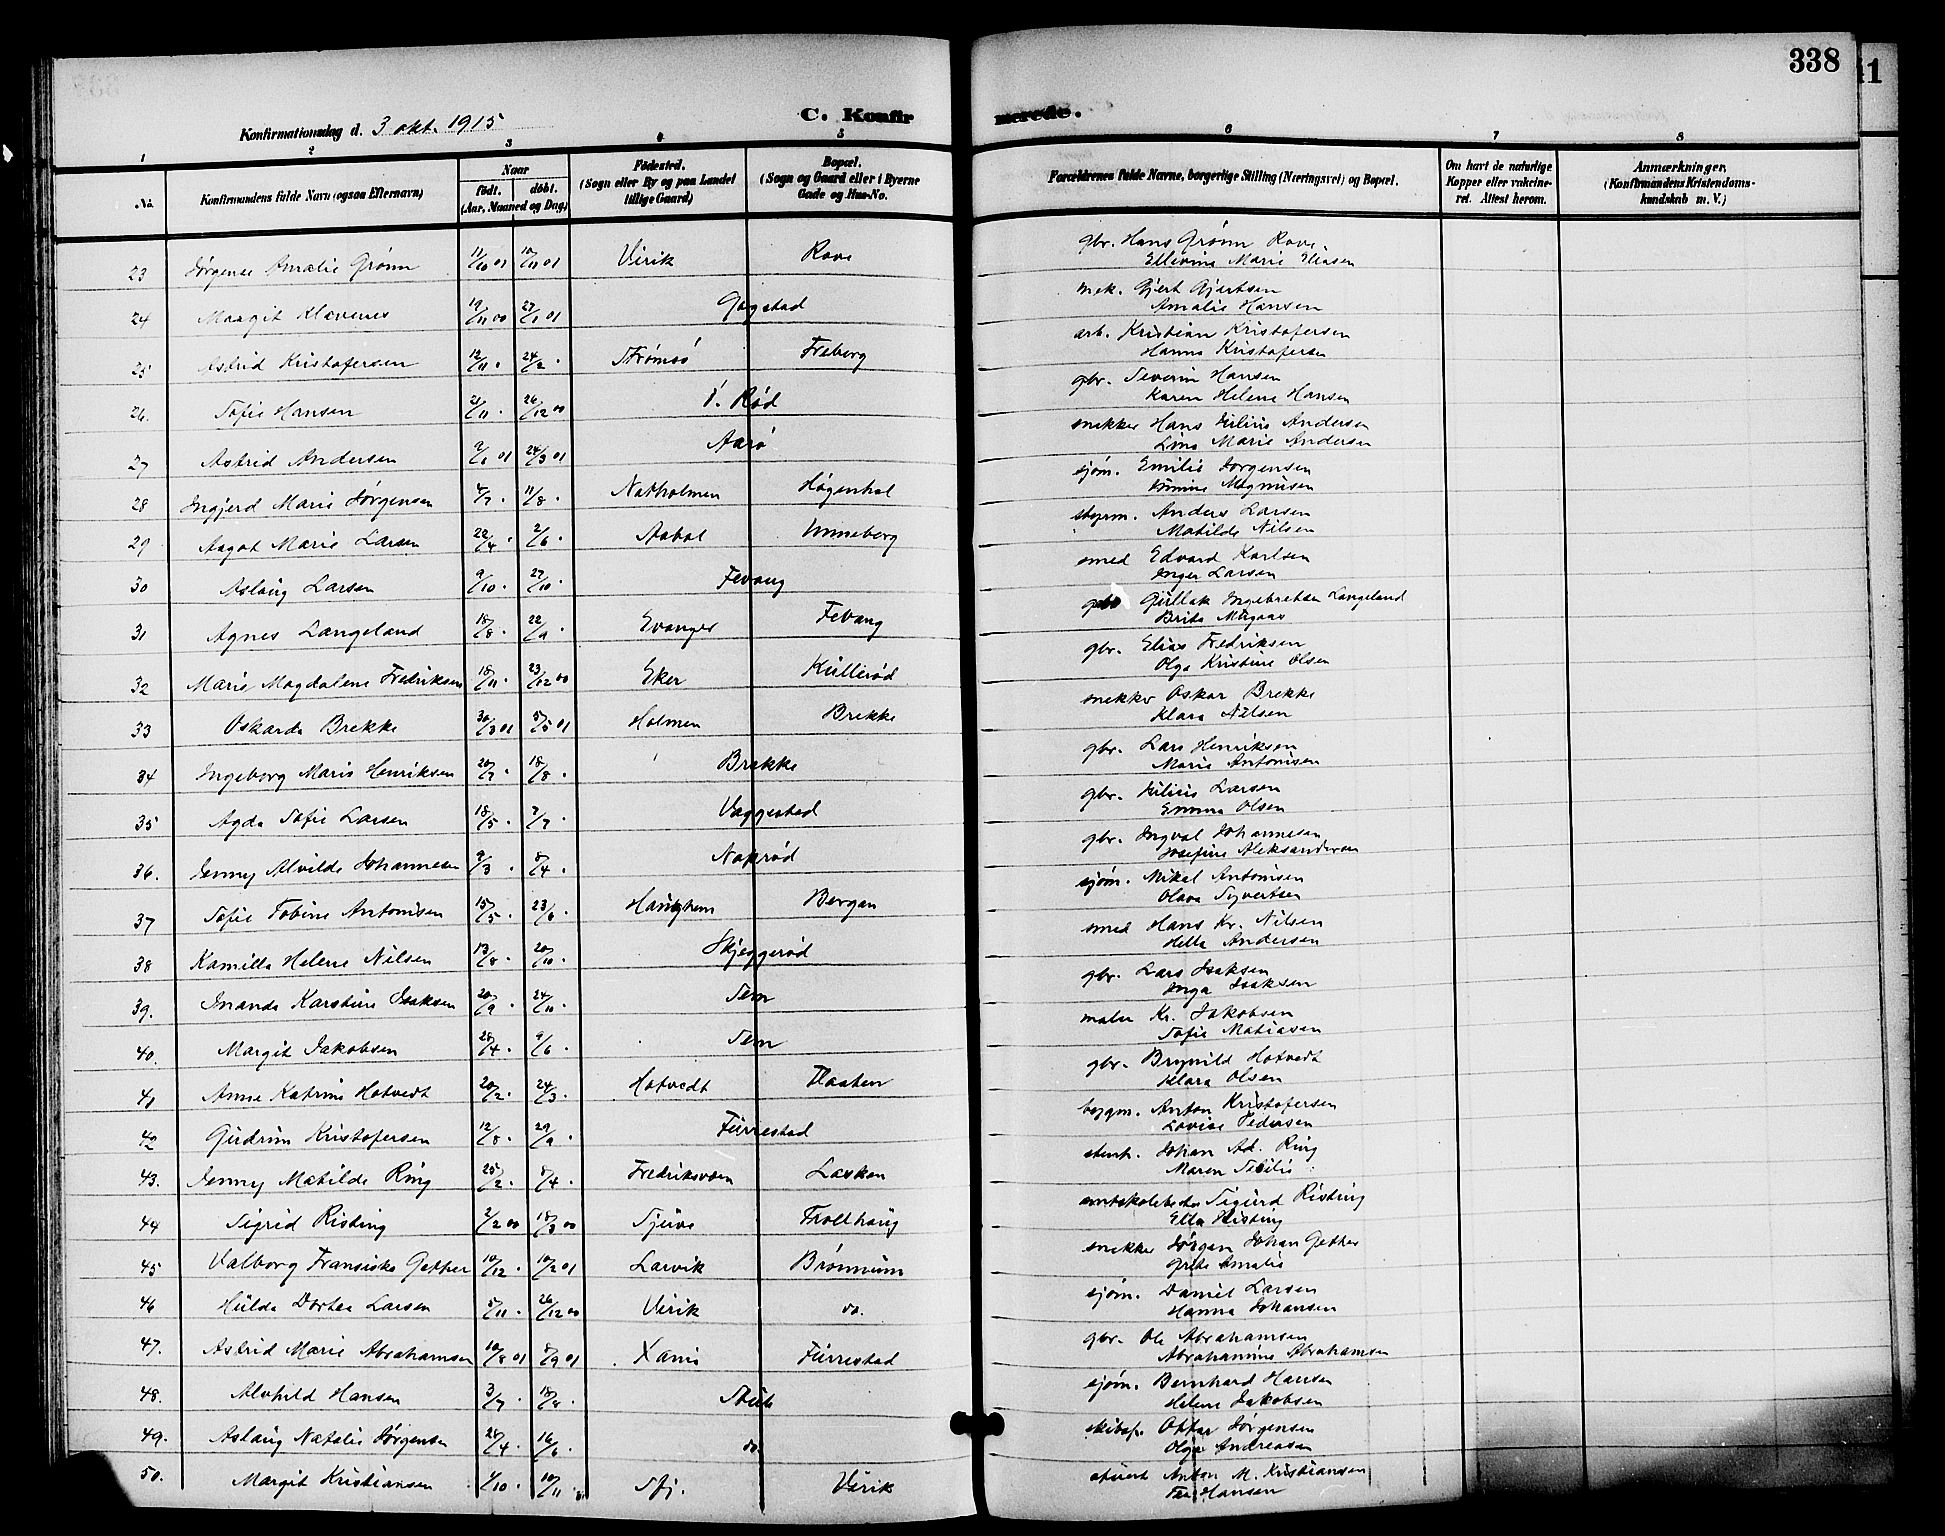 338
C. Konfirmerede.
Konfirmationsdag d. 3 okt. 1915
1 2 3 4 5 6 7 8
No. Konfirmandens fulde Navn (ogsaa Efternavn) Naar født. døbt. (Aar, Maaned og Dag) Fødested. (Sogn eller By og paa Landet tillige Gaard) Bopæl. (Sogn og Gaard eller i Byerne Gade og Hus-No. Forældrenes fulde Navne, borgerlige Stilling (Næringsvei) og Bopæl. Om havt de naturlige Kopper eller vakcineret. Attest herom. Anmærkninger. (Konfirmandens Kristendomskundskab m. V.)
23 Jørgense Amalie Grønn 11/10 01 10/11 01 Virik Rove gbr. Hans Grønn Rove.
Ellevine Marie
24 Margit Klavenes 19/11 00 27/1 01 Gogstad mek. Gjert Gjertsen
Amalie Hansen
25 Astrid Kristofersen 12/11 . 24/2 . Strømsø Freberg arb. Kristian Kristofersen
Hanna Kristofersen
26. Sofie Hansen 21/11 . 26/12 00 Ø. Rød gbr. Severin Hansen
Karen Helene Hansen
27 Astrid Andersen 9/1 01 24/3 01 Aarø snekker Hans Julius Andersen
Lina Marie Andersen
28 Ingjerd Marie Jørgensen 4/7 . 11/8 . Natholmen Høgenhal sjøm. Emilie Jørgensen
Magnusen
29 Aagot Marie Larsen 22/4 . 2/6 . Aabol Unneberg styrm. Anders Larsen
Matilde Nilsen
30 Aslaug Larsen 9/10 . 27/10 . Fevang smed Edvard Karlsen
Inger Larsen
31 Agnes Langeland 18/8 . 22/9 . Evanger Fevang Gullak Ingebretsen Langeland
Brita
32 Marie Magdalene Fredriksen 18/11 . 23/12 00 Eker Kullerød gbr. Elias Fredriksen
Olga Kristine Olsen
33 Oskarda Brekke 30/3 01 5/5 01 Holmen Brekke snekker Oskar Brekke
Klara Nilsen
34 Ingeborg Marie Henriksen 20/7 . 18/8 . Brekke gbr. Lars Henriksen
Marie Antonisen
35 Agda Sofie Larsen 18/5 . 7/7 . Vaggestad gbr. Julius Larsen
Emma Olsen
36. Jenny Alvilde Johannesen 9/3 . 8/4 . Noprød gbr. Ingval Johannesen
Josefine Aleksandersen
37 Sofie Tobine Antonisen 15/5 . 23/6 . Haughem Bergan sjøm. Mikal Antonisen
Olava Syvertsen
38 Kamilla Helene Nilsen 13/8 . 20/10 . Skjeggerød smed Hans Kr. Nilsen
Hella Andersen
39. Inanda Karstine Isaksen 20/9 . 24/11 . Sem gbr. Lars Isaksen
Inga Isaksen
40. Margit Jakobsen 28/4 . 9/6 . Sem maler Kr. Jakobsen
Sofie Matiasen
41 Anne Katrine Hotvedt 20/2 . 24/3 . Hotvedt Flaaten gbr. Brynild Hotvedt
Klara Olsen
42 Gudrun Kristofersen 12/8 . 29/9 . Furrestad bygm. Anton Kristofersen
Lovise Pedersen
43. Jenny Matilde Ring 25/2 . 8/4 . Fredriksværn Lasken stenh. Johan Ad. Ring
Maren
44 Sigrid Risting 2/2 00 18/3 00 Sjuve Trollhaug amtskolebestr. Sigurd Risting
Ella Risting
45 Valborg Fransiska Gether 10/12 . 10/2 01 Larvik Brønnum snekker Jørgen Johan Gether
Grete Amalie
46 Hulda Dortea Larsen 5/11 . 26/12 00 Virik do. sjøm. Daniel Larsen
Hanna Johansen
47. Astrid Marie Abrahamsen 10/8 01 8/9 01 Xania Furrestad gbr. Ole Abrahamsen
Abrahamine Abrahamsen
48. Alvhild Hansen 3/7 . 18/8 . Stub sjøm. Bernhard Hansen
Helene Jakobsen
49. Aslaug Natalie Jørgensen 24/4 . 16/6 . do. skibsf. Ottar Jørgensen
Olga Andreasen
50. Margit Kristiansen 1/10 . 10/11 . Sfj. Virik stuert Anton M. Kristiansen
Hansen